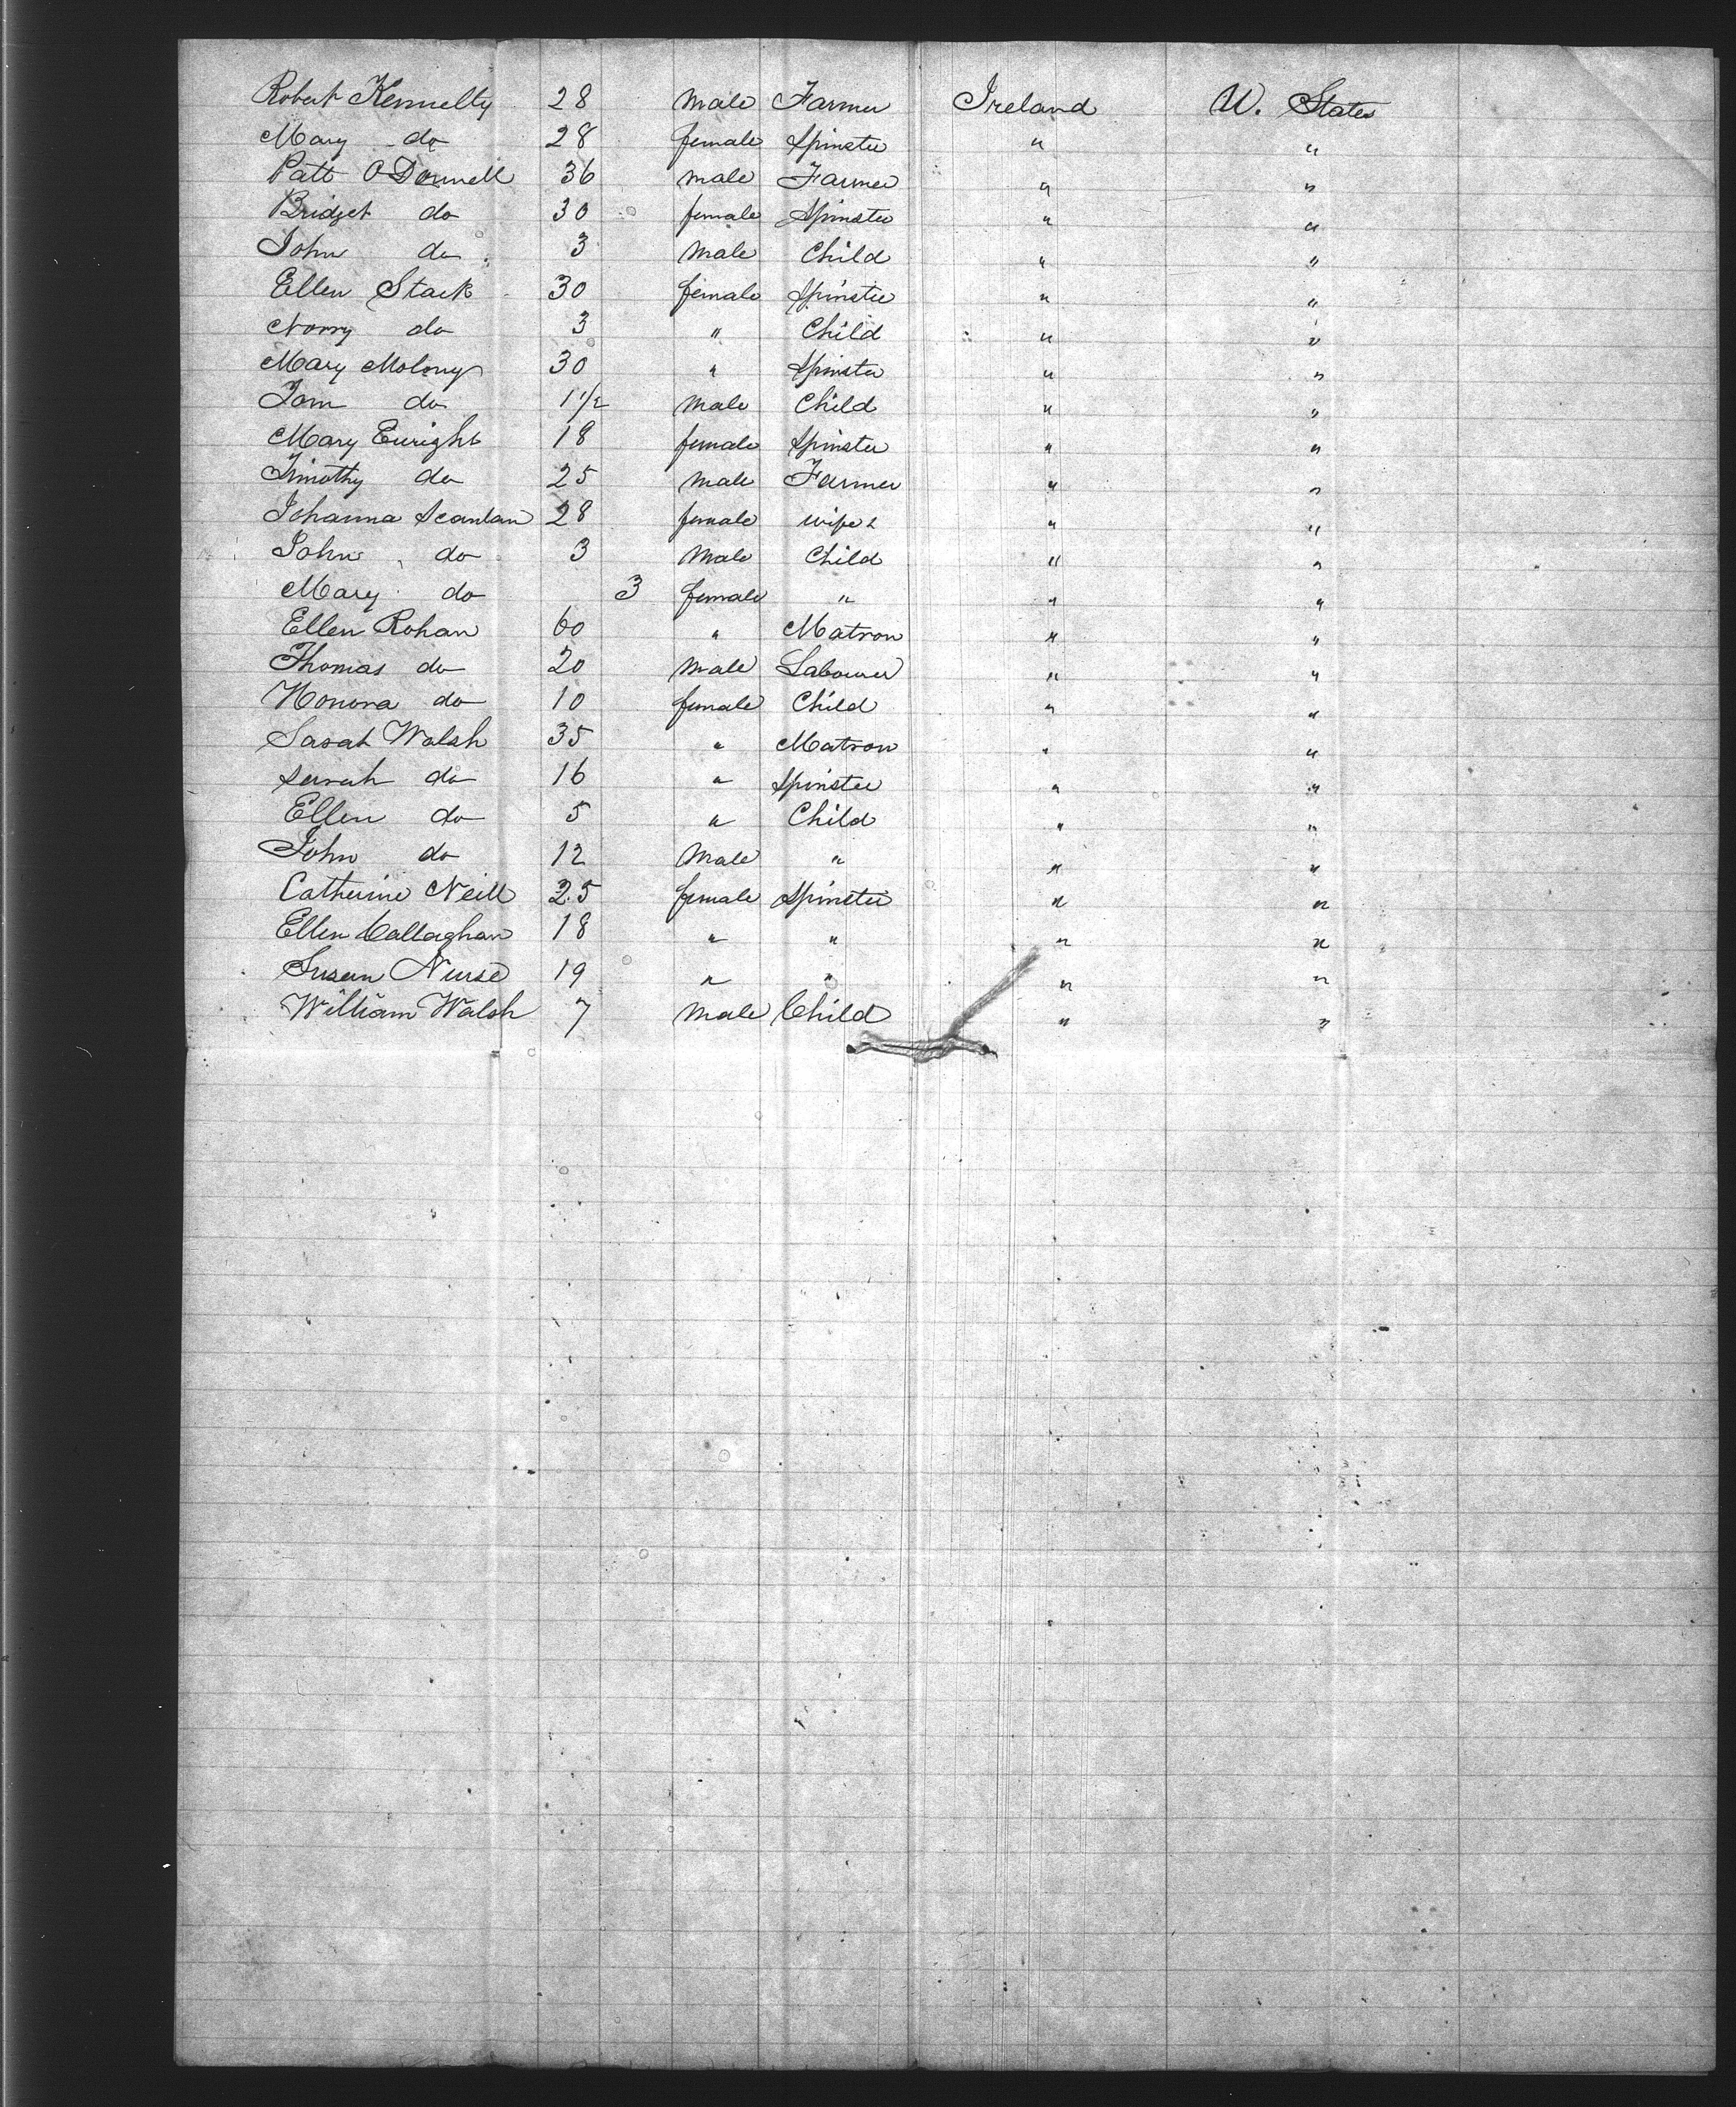 Robert Kennelly 28 male Farmer Ireland U. States
Mary do 28 female Spinster " "
Patt O Donnell 36 male Farmer " "
Bridget do 30 female Spinster " "
John do 3 male Child " "
Ellen Stack 30 female Spinster " "
Norry do 3 " Child " "
Mary Molony 30 " Spinster " "
Tom do 1 1/2 male Child " "
Mary Enright 18 female Spinster " "
Timothy do 25 male Farmer " "
Johanna Scanlan 28 female wife " "
John do 3 male Child " "
Mary do 3 female " " "
Ellen Rohan 60 " Matron " "
Thomas do 20 male Labourer " "
Honora do 10 female Child " "
Sarah Walsh 35 " Matron " "
Sarah do 16 " Spinster " "
Ellen do 5 " Child " "
John do 12 male " " "
Catherine Neill 25 female Spinster " "
Ellen Callaghan 18 " " " "
Susan Nurse 19 " " " "
William Walsh 7 male Child " "